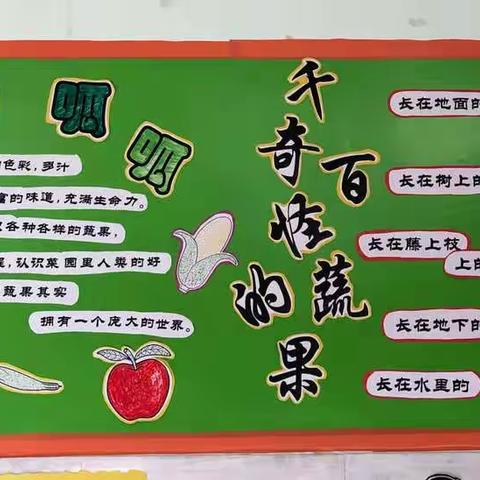 呱
呱
的色彩，多汁
富的味道，充满生命力。
各种各样的蔬果，
，认识菜园里人类的好
蔬果其实
拥有一个庞大的世界。
千奇百怪
的蔬果
长在地面的
长在树上的
长在藤上枝
上的
长在地下的
长在水里的